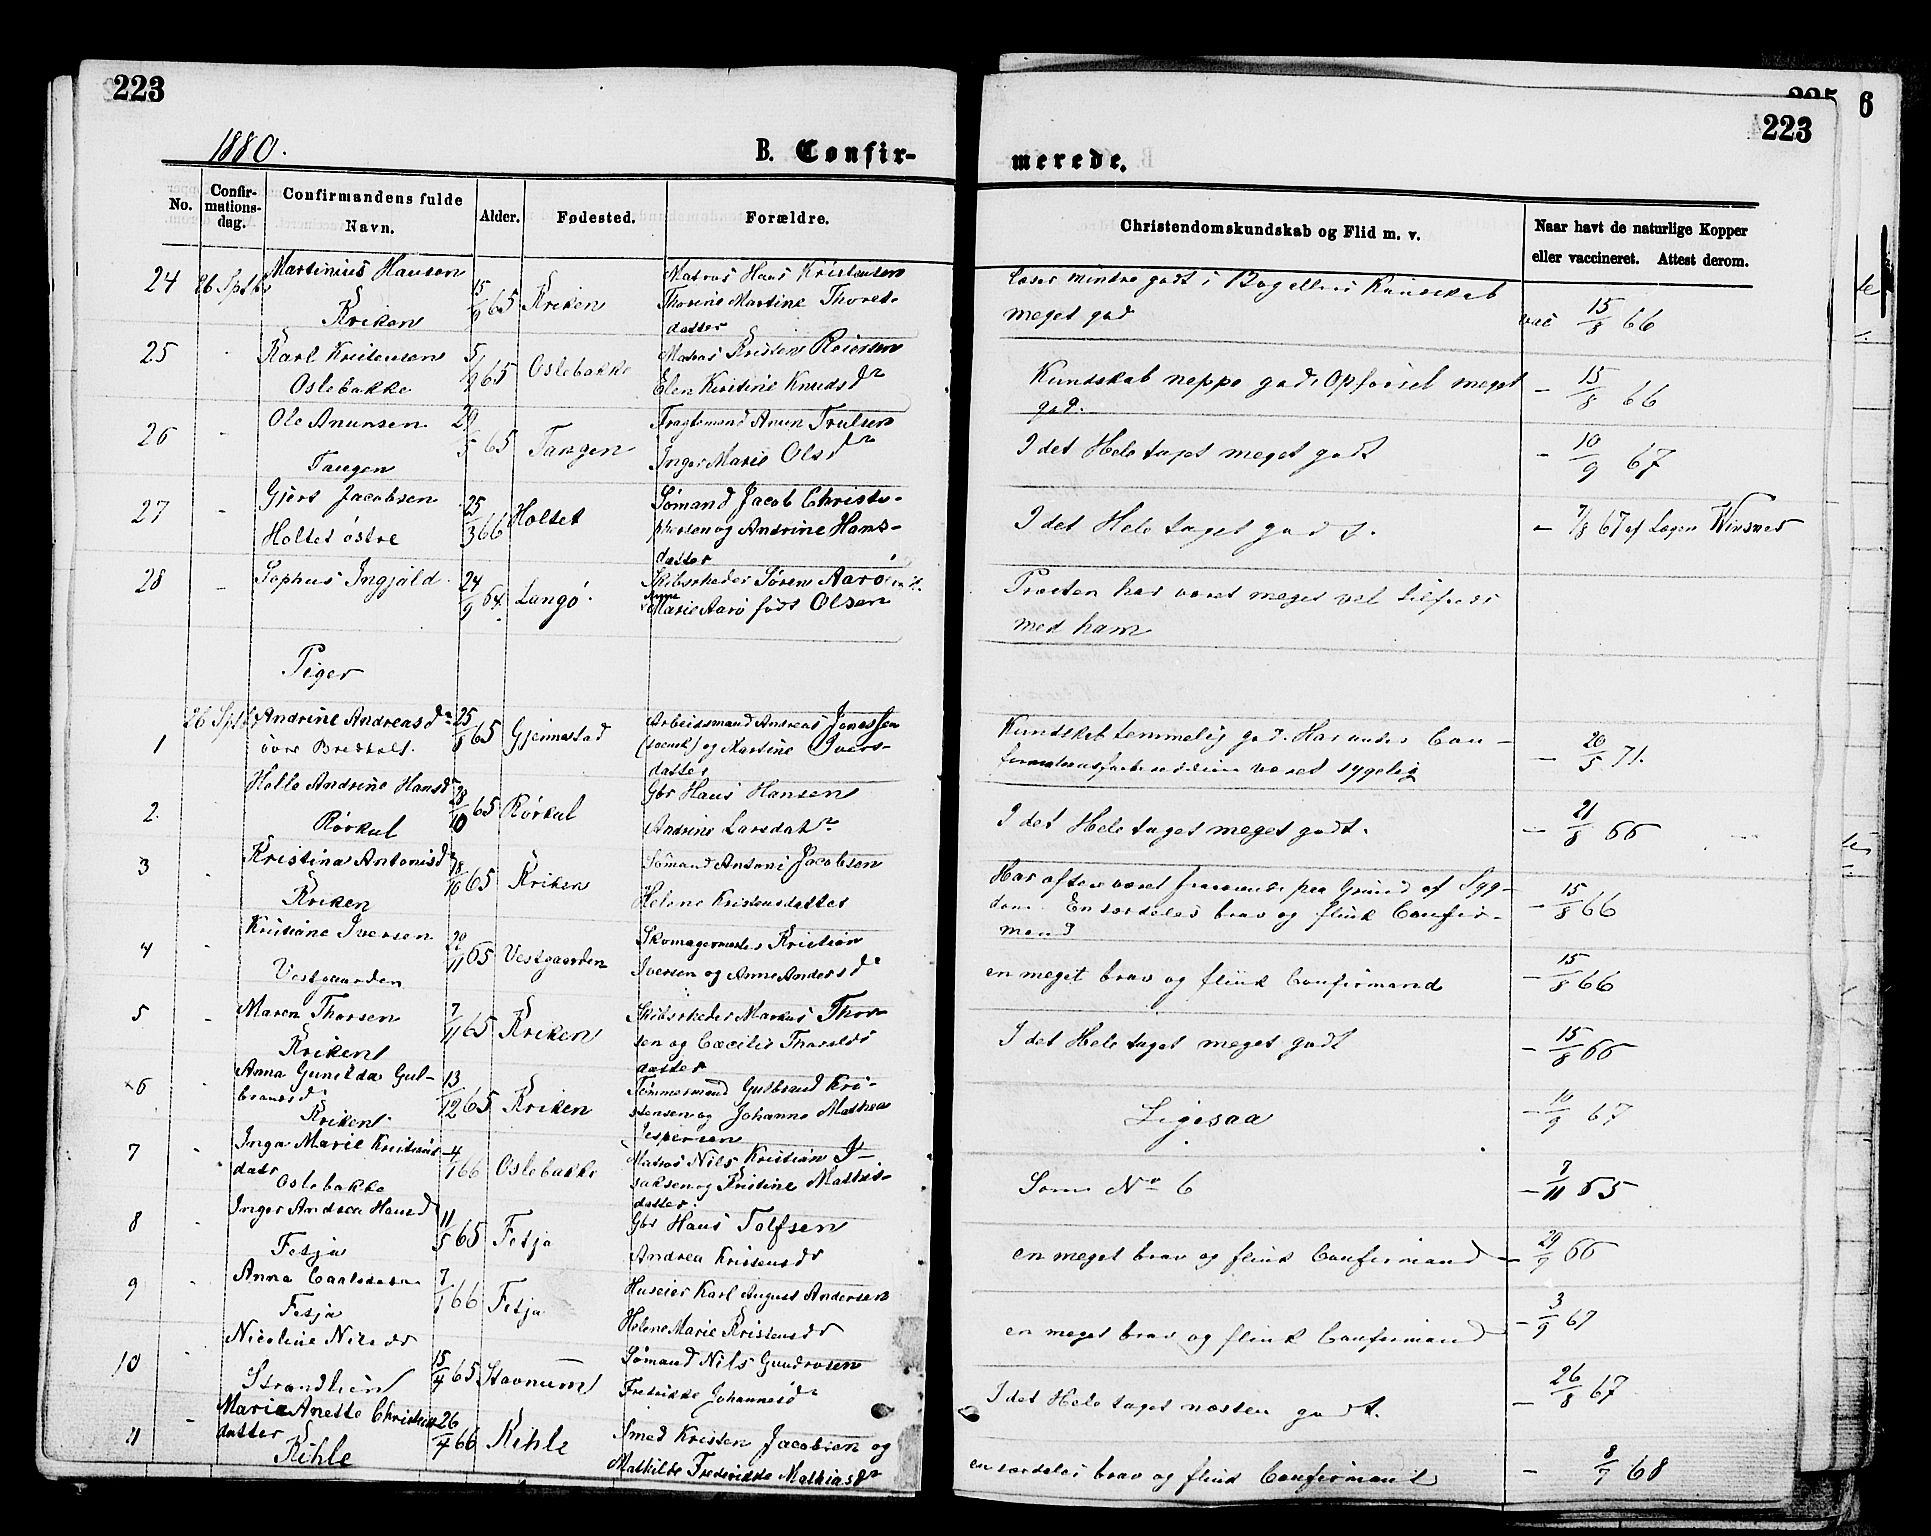 223
1880.
B. Confir-
merede.
225
6
223
No.
Confir-
mations-
dag.
Confirmandens fulde
Navn.
Alder.
Fødested.
Forældre.
Christendomskundskab og Flid m. v.
Naar havt de naturlige Kopper
eller vaccineret. Attest derom.
24 26 Sptbr Martinius Hansen
Kriken
15/9 65 Kriken
Matros Hans Kristensen
Thorine Martine Thores-
datter
Læser mindre godt i Bog ellers Kundskab
meget god
vac 15/8 66
25 Karl Kristensen
Oslebakke
5/9 65 Oslebakke
Matros Kristen Reiersen
Elen Kirstine Knudsdr
Kundskab neppe god. Opførsel meget
god.
- 15/8 66
26 - Ole Anunsen
Tangen
29/5 65 Tangen
Fragtemand Anun Trulsen
Inger Marie Olsdr
I det Hele taget meget godt
- 10/9 67
27 - Gjert Jacobsen
Holtet østre
25/3 66 Holtet
Sømand Jacob Christo-
phersen og Andrine Hans-
datter
I det Hele taget godt.
- 7/8 67 af Lægen Winsnes
28 - Sophus Ingjald
24/9 64. Langø.
Skibsrheder Søren Aarø
Anne
Marie Aarø født Olsen
Præsten har været meget vel tilfreds
med ham
Piger
1 26 Sptbr Andrine Andreasdr
øvre Bredholt.
25/8 65 Gjennestad
Arbeidsmand Andreas Jonassen
(svensk) og Martine Ivers-
datter
Kundskab temmelig god. Har under Con-
firmationsforberedelsen været sygelig
- 20/5 71.
2. Helle Andrine Hansdr
Rørkul
28/10 65 Rørkul
Gbr Hans Hansen
Andrine Larsdatr
I det Hele taget meget godt.
- 21/8 66
3 Kristina Antonisdr
Kriken
18/10 65 Kriken
Sømand Antoni Jacobsen
Helene Kristensdatter
Har oftere været fraværende paa Grund af Syg-
dom. En særdeles brav og flink Confir-
mand
- 15/8 66
4 Kristiane Iversen
Vestgaarden
20/11 65 Vestgaarden
Skomagermester Kristian
Iversen og Anne Andersdr
en meget brav og flink Confirmand
- 15/8 66
5 - Maren Thorsen
Kriken
7/11 65 Kriken
Skibsrheder Markus Thor-
sen og Cæcilie Tharalds
datter
I det Hele taget meget godt
- 15/8 66
6 Anna Gunilda Gul-
bransdr
Kriken
13/12 65 Kriken
Tømmermand Gulbrand Kri-
stensen og Johanne Mathea
Jespersen
Ligesaa
- 10/9 67
7 - Inga Marie Kristians
datr
Oslebakke
4/1 66 Oslebakke
Matros Nils Kristian I-
saksen og Kristine Mathis-
datter.
Som No 6
- 7/11 65
8 - Inger Andrea Hansdr
Fetja
11/5 65 Fetja
Gbr Hans Tolfsen
Andrea Kristensdr
en meget brav og flink Confirmand
- 29/9 66
9 - Anna Carlsdatter
Fetja
7/1 66 Fetja
Huseier Karl August Andersen
Helene Marie Kristensdr
en meget brav og flink Confirmand
- 3/9 67
10 - Nicoline Nilsdr
Strandlien
15/4 65 Stavnum
Sømand Nils Gundrosen
Fredrikke Johannesdr
I det Hele taget næsten godt.
- 26/8 67
11 - Marie Anette Christens
datter
Kihle
26/4 66 Kihle
Smed Kristen Jacobsen og
Mathilde Frederikke Mathiasdr
en særdeles brav og flink Confirmand
- 8/7 68